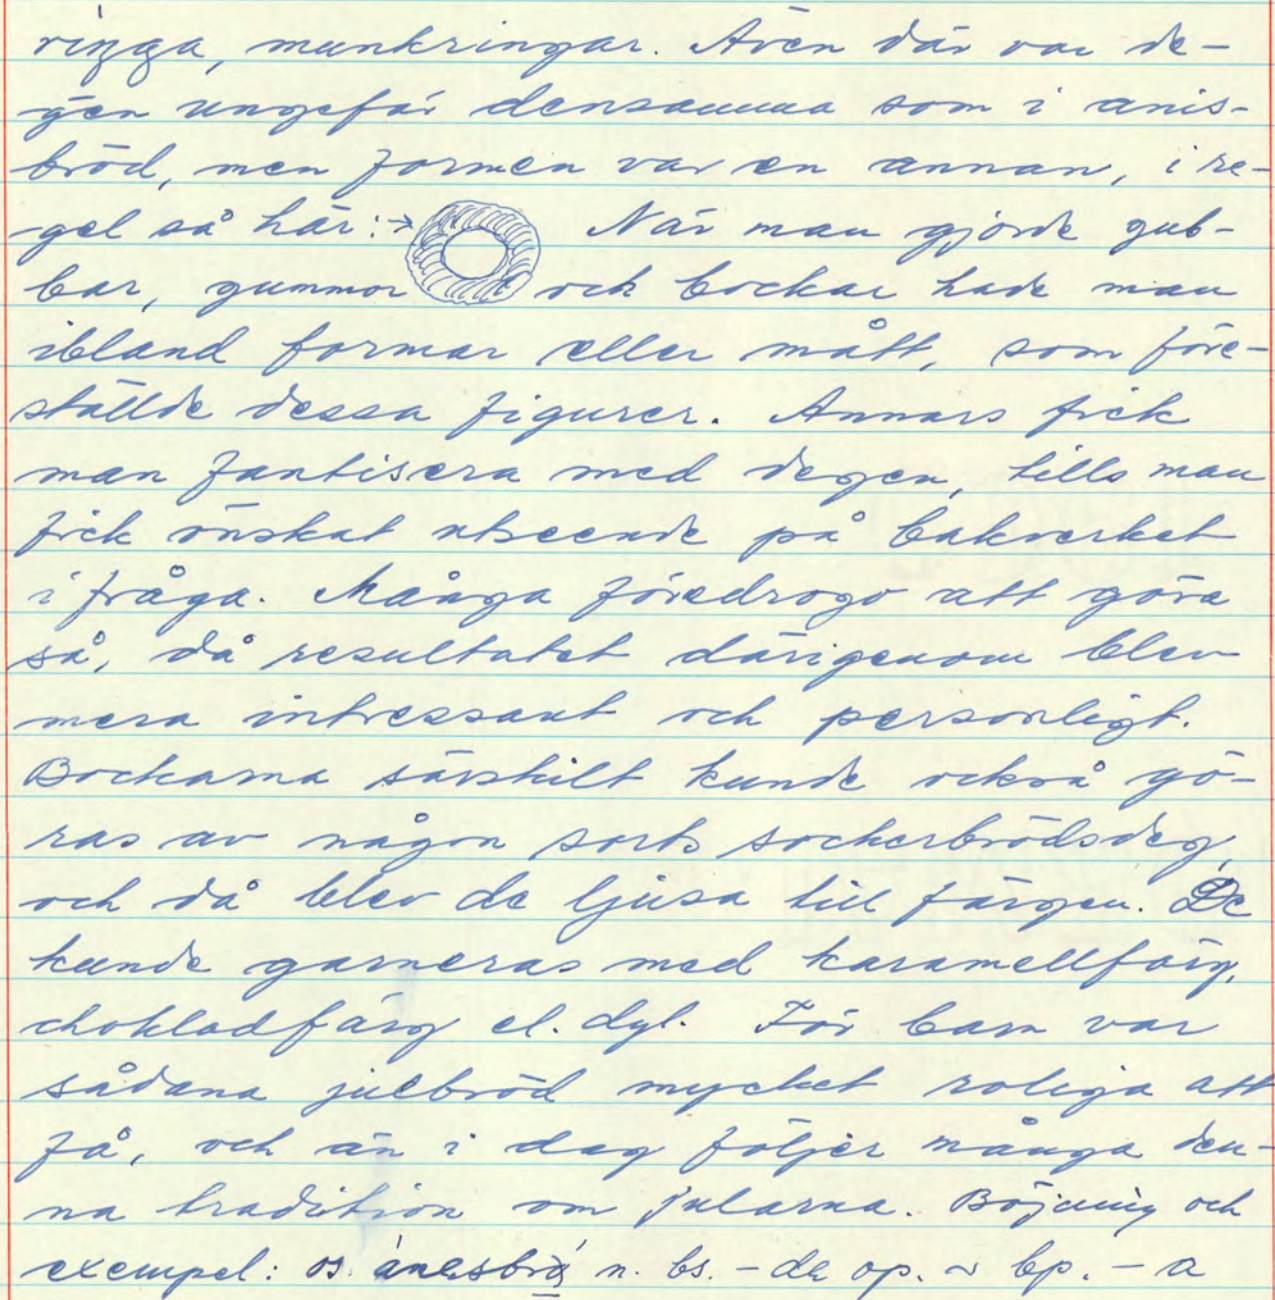 ringga, munkringar. Även där var de-
gen ungefär densamma som i anis-
bröd, men formen var en annan, i re-
gel så här:→ När man gjorde gub-
bar, gummor och bockar hade man
ibland formar eller mått, som före-
ställde dessa figurer. Annars fick
man fantisera med degen, tills man
fick önskat utseende på bakverket
i fråga. Många föredrogo att göra
så, då resultatet därigenom blev
mera intressant och personligt.
Bockarna särskilt kunde också gö-
ras av någon sorts sockerbrödsdeg,
och då blev de ljusa till färgen. De
kunde garneras med karamellfärg,
chokladfärg el. dyl. För barn var
sådana julbröd mycket roliga att
få, och än i dag följer många den-
na tradition om jularna. Böjning och
exempel: os. ánesbrö n. bs. - de op. ~ bp. - a